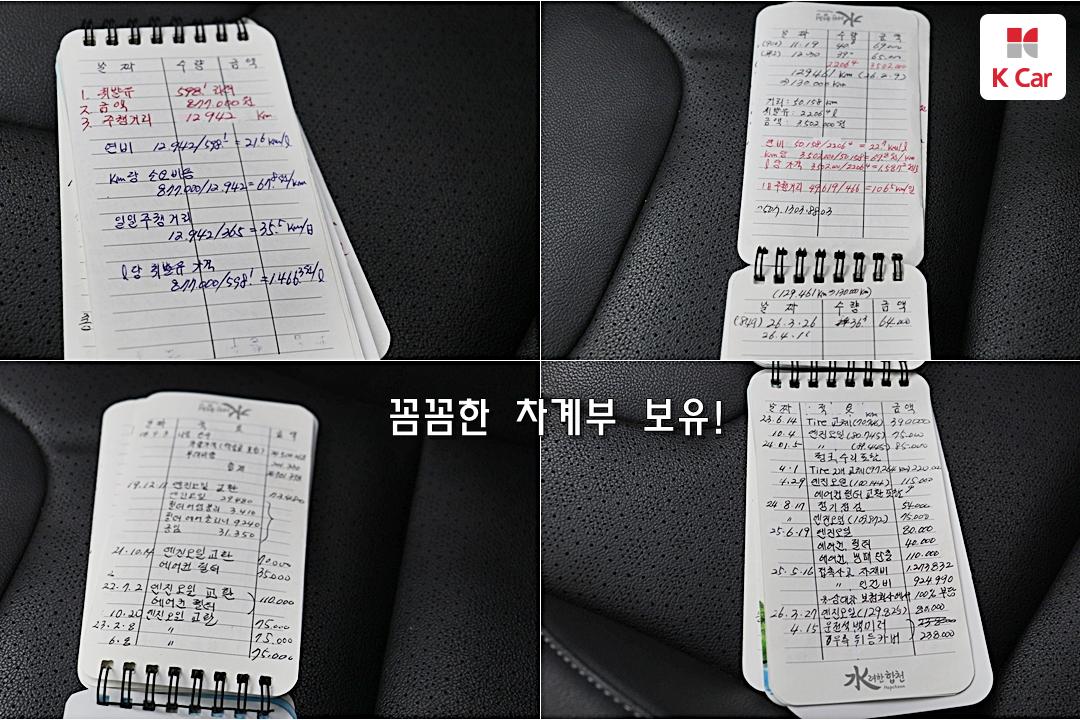 날짜 수량 금액
1. 휘발유 598¹ 리터
2. 금액 877.000원
3. 주행거리 12.942 Km
연비 12.942/598¹ = 21⁶ Km/l
Km당 소요비용
877.000/12.942 = 67.⁸원/Km
일일주행거리
12.942/365 = 35.⁵ Km/日
l당 휘발유 가격
877.000/598¹ = 1466³원/l
水려한합천
날짜 수량 금액
11.19 40 69.000
12.30 39 65.000
2206⁴ 3502.000
129461 Km (26.2.9)
⇒130.000 Km
거리: 50.158 km
휘발유: 2206⁴ l
금액: 3502.000원
연비 50158/2206⁴ = 22.⁷ Km/l
Km당 3.502.000/50.158 = 원/Km
l당 가격 3502.000/2206⁴ = 1.587² 원/l
1日 주행거리 49.619/466 = 106⁵ Km/일
(129.461 Km ⇒ 130.000 Km)
날짜 수량 금액
(849) 26.3.26 36⁴ 64.000
K Car
꼼꼼한 차계부 보유!
水려한합천
날짜 적요 금액
합계
19.12.11 엔진오일 교환
엔진오일 29.480
필터어셈블리 3.410
필터 에어클리너 9240
공임 31.350
21.10.14 엔진오일 교환 70.000
에어컨 필터 35.000
22.7.2 엔진오일 교환
에어컨 필터 110.000
10.20 엔진오일 교환 75.000
23.2.8 〃 75.000
6.8 〃 75.000
날짜 적요 Km 금액
23.6.14 Tire 교체 390.000
10.4 엔진오일 (80.745) 75.000
24.01.5 〃 85.000
펑크수리 포함
4.1 Tire 2개 교체 220.000
4.29 엔진오일 (100.142) 115.000
에어컨 필터 교환 포함
24.8.17 정기점검 54.000
〃 엔진오일 (107.872) 75.000
25.6.19 엔진오일 80.000
에어컨 필터 40.000
에어컨 110.000
25.5.16 접촉사고 자재비 1.273.832
〃 인건비 924.990
보험회사에서 100% 부담
26.3.27 엔진오일 (129.823) 80.000
4.15 운전석 백미러 238.000
우측 뒤 등카바 238.000
水려한합천
Hapcheon